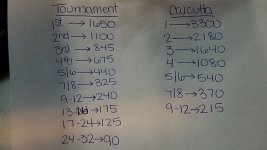 Tournament
1st → 1650
2nd → 1100
3rd → 845
4th → 675
5/6 → 440
7/8 → 325
9-12 → 240
13-16 → 175
17-24 → 125
24-32 → 90
Calcutta
1 → 3300
2 → 2180
3 → 1640
4 → 1080
5/6 → 540
7/8 → 370
9-12 → 215